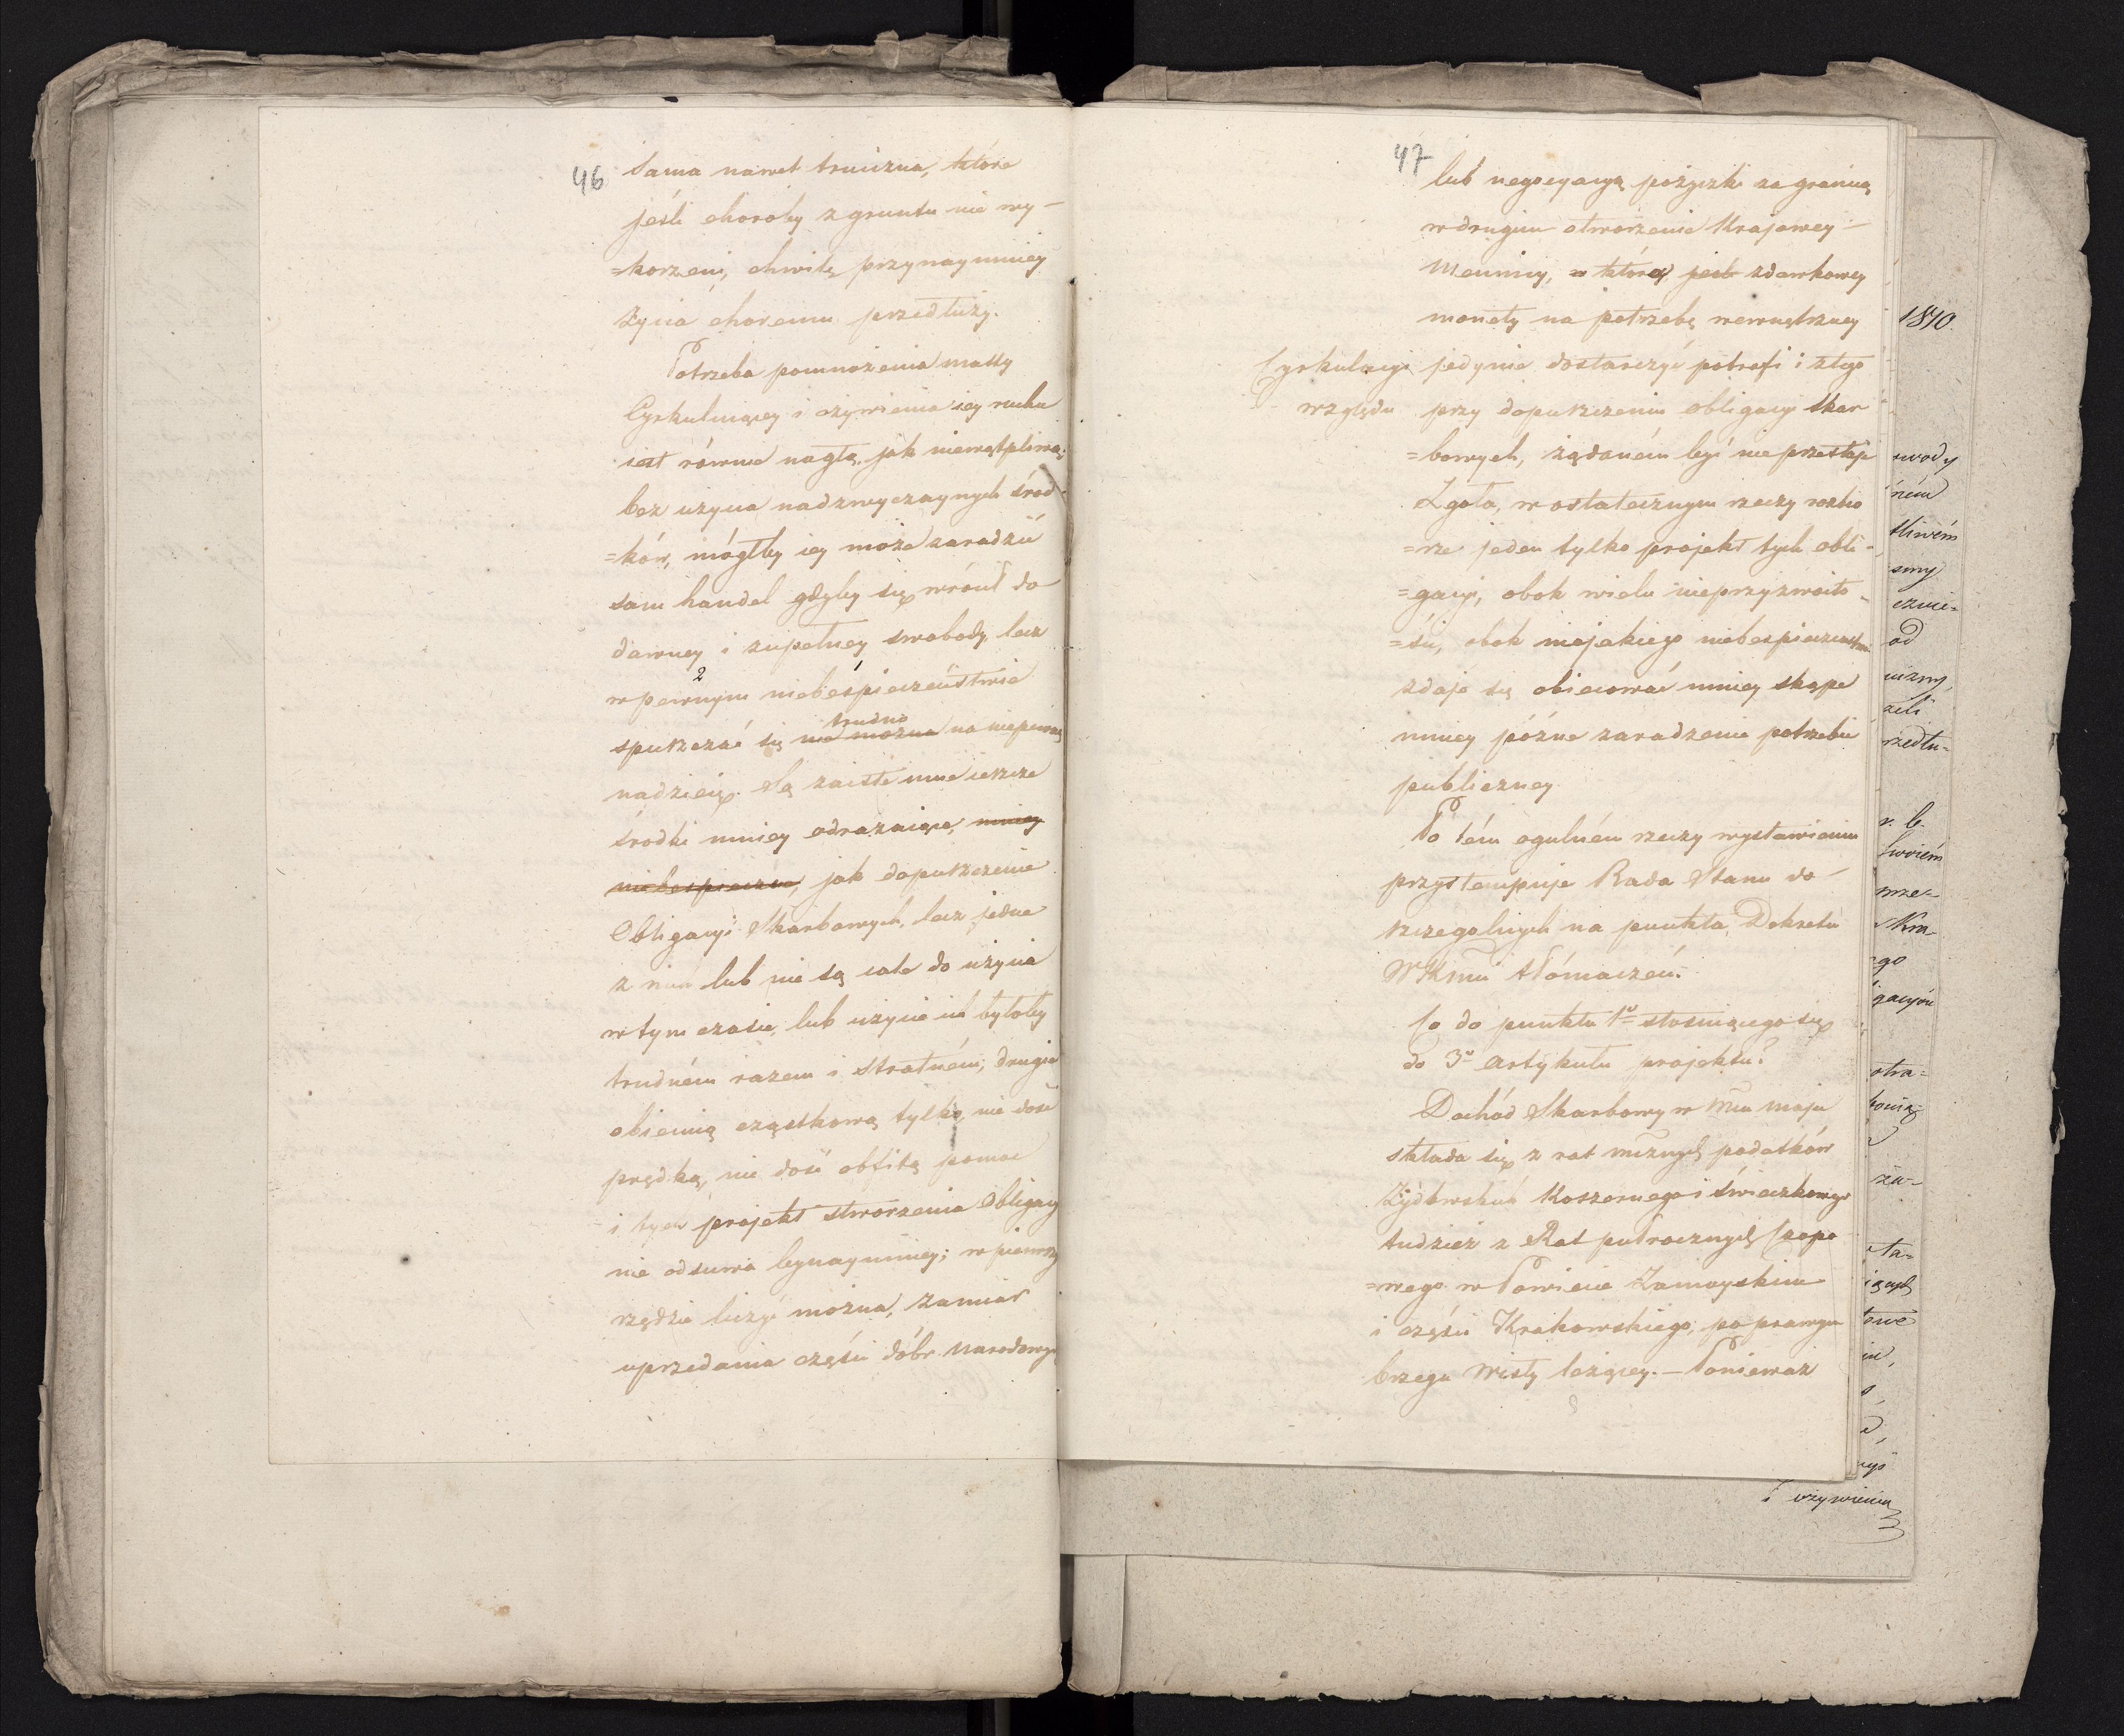 46
sama nawet trucizna, która
jeśli choroby z gruntu nie wy-
=korzeni, chwilę przynaymniey
życia choremu przedłuży.
Potrzeba pomnożenia massy
Cyrkuluiącey i ożywienia iey ruchu
iest równie nagłą, jak niewątpliwą;
bez użycia nadzwyczaynych środ-
=ków, mógłby iey może zaradzić
sam handel gdyby się wrócił do
dawney i zupełney swobody, lecz
2
w pewnym niebéspieczeństwie
trudno
spuszczać się nie można na niepewną
nadzieię. Są zaiste inne ieszcze
środki mniey odrażaiące, mniey
niebespieczne, jak dopuszczenie
Obligacyi Skarbowych, lecz jedne
z nich lub nie są cale do użycia
w tym czasie, lub użycie ich byłoby
trudném razem i stratném; drugie
obiecuią cząstkową tylko, nie dość
prędką, nie dość obfitą pomoc
i tych projekt stworzenia Obligacy
nie odsuwa bynaymniey; w pierwszy
rzędzie liczyć można, zamiar
uprzedania części dóbr Narodowych
47
lub negocyacyą pożyczki za granicą
w drugim otworzenie Krajowey
Mennicy, w którey jest zdawkowey
monety na potrzebę wewnętrzney
Cyrkulacyi jedynie dostarczyć potrafi i z tego
względu przy dopuszczeniu obligacyi skar
=bowych, żądaném być nie przestaje
Zgoła, w ostatecznym rzeczy rozbio
=rze jeden tylko projekt tych obli-
=gacyi, obok wielu nieprzyzwoito-
=ści, obok niejakiego niebespieczeństwa
zdaje się obiecować mniey skąpe
mniey późne zaradzenie potrzebie
publiczney.
Po tém ogulném rzeczy wystawieniu
przystempuje Rada Stanu do
szczegolnych na punkta Dekretu
WKMci tłómaczeń.
Co do punktu 1º stosuiącego się
do 3º artykułu projektu?
Dochód Skarbowy w Mcu Maju
składa się z rat różnych podatków
Żydowskich Koszernego i świeczkowego
tudzież z Rat półrocznych Czopo
=wego w Powiecie Zamoyskim
i części Krakowskiego, po prawym
brzegu Wisły leżącey. – Ponieważ
1810
wody
ném
śliwém
smy
cznie=
od
uizny,
zeli
rzedłu=
r. b.
swoiém
mze=
Kra-
go
gacyów
otra=
żu-
sta=
iących
towe
Używienia